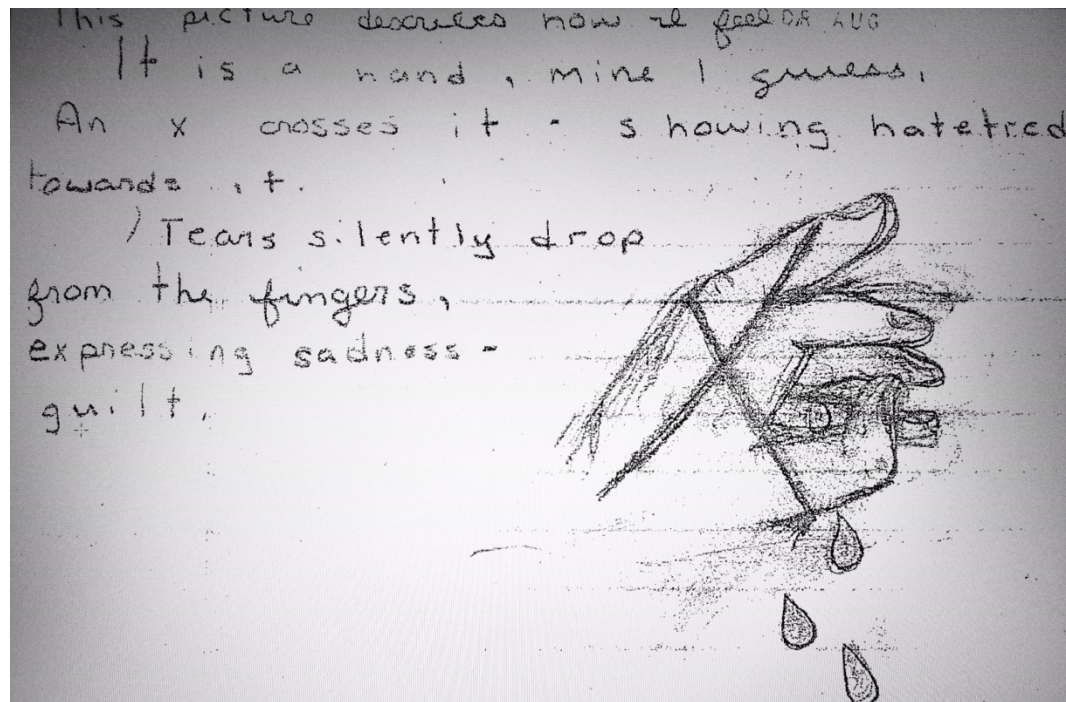 This picture describes how I feel DR AUG
It is a hand, mine I guess.
An x crosses it - showing hatetred
towards it.
) Tears silently drop
from the fingers,
expressing sadness -
guilt.